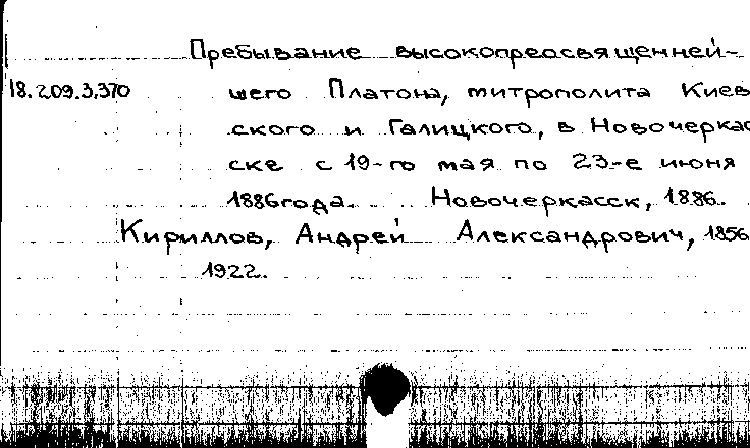 Пребывание высокопреосвященней-
18.209.3.370 шего Платона, митрополита Киев
ского и Галицкого, в Новочеркас
ске с 19-го мая по 23-е июня
1886года. Новочеркасск, 1886.
Кириллов, Андрей Александрович, 1856
1922.